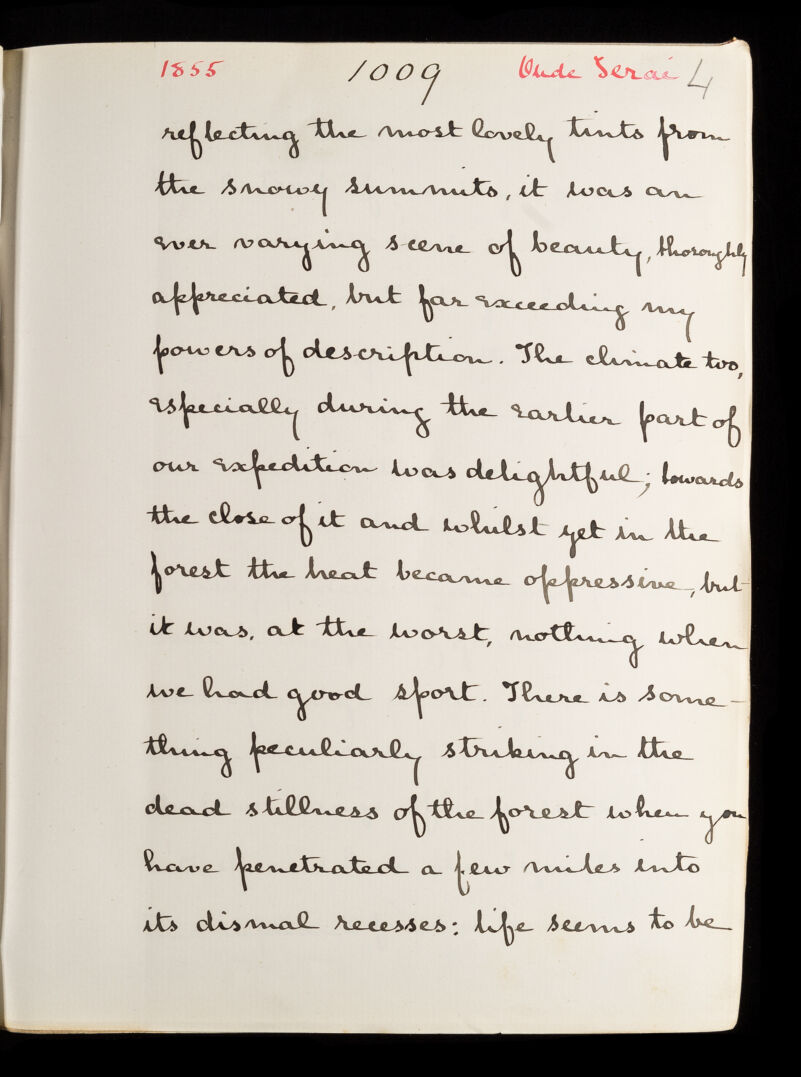 1855 1009 Oude Terai 4
reflecting the most lovely tints from
the snowy summits, it was an
ever varying scene of beauty, thoroughly
appreciated, but far exceeding my
powers of description. The climate too,
especially during the earlier part of
our expedition was delightful; towards
the close of it and whilst yet in the
forest the heat became oppressive, but
it was, at the worst, nothing when
we had good sport. There is some-
thing peculiarly striking in the
dead stillness of the forest when you
have penetrated a few miles into
its dismal recesses: life seems to be